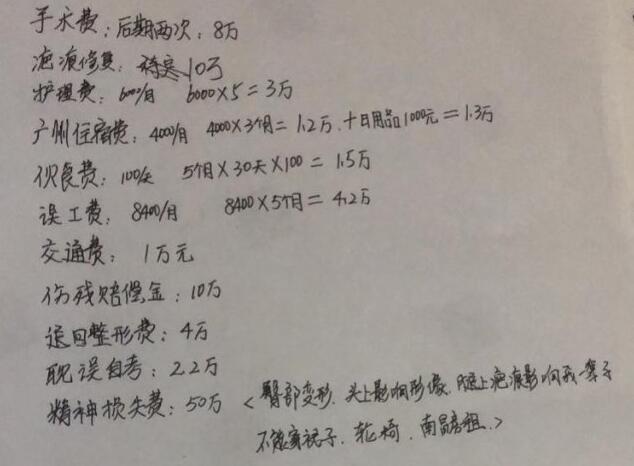 手术费：后期两次：8万
疤痕修复：10万
护理费：6000/月 6000×5=3万
广州住宿费：4000/月 4000×3个月=1.2万.+日用品1000元=1.3万
伙食费：100/天 5个月×30天×100=1.5万
误工费：8400/月 8400×5个月=4.2万
交通费：1万元
伤残赔偿金：10万
退回整形费：4万
耽误自考：2.2万
精神损失费：50万<臀部变形.头上影响形像.腿上疤痕影响我一辈子
不能穿裙子.轮椅.南昌房租.>